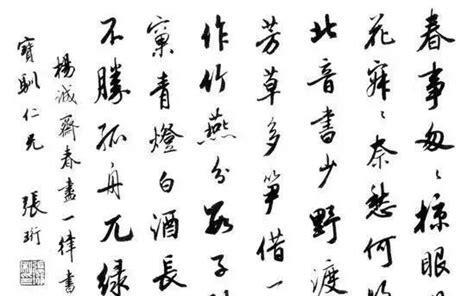 春事匆〻掠眼
花寂〻奈愁何
北音書少野渡
芳草多笋借一
作竹燕分數子
窠青燈白酒長
不勝孤舟兀綠
楊誠齋春盡一律書
寶馴仁兄 張珩